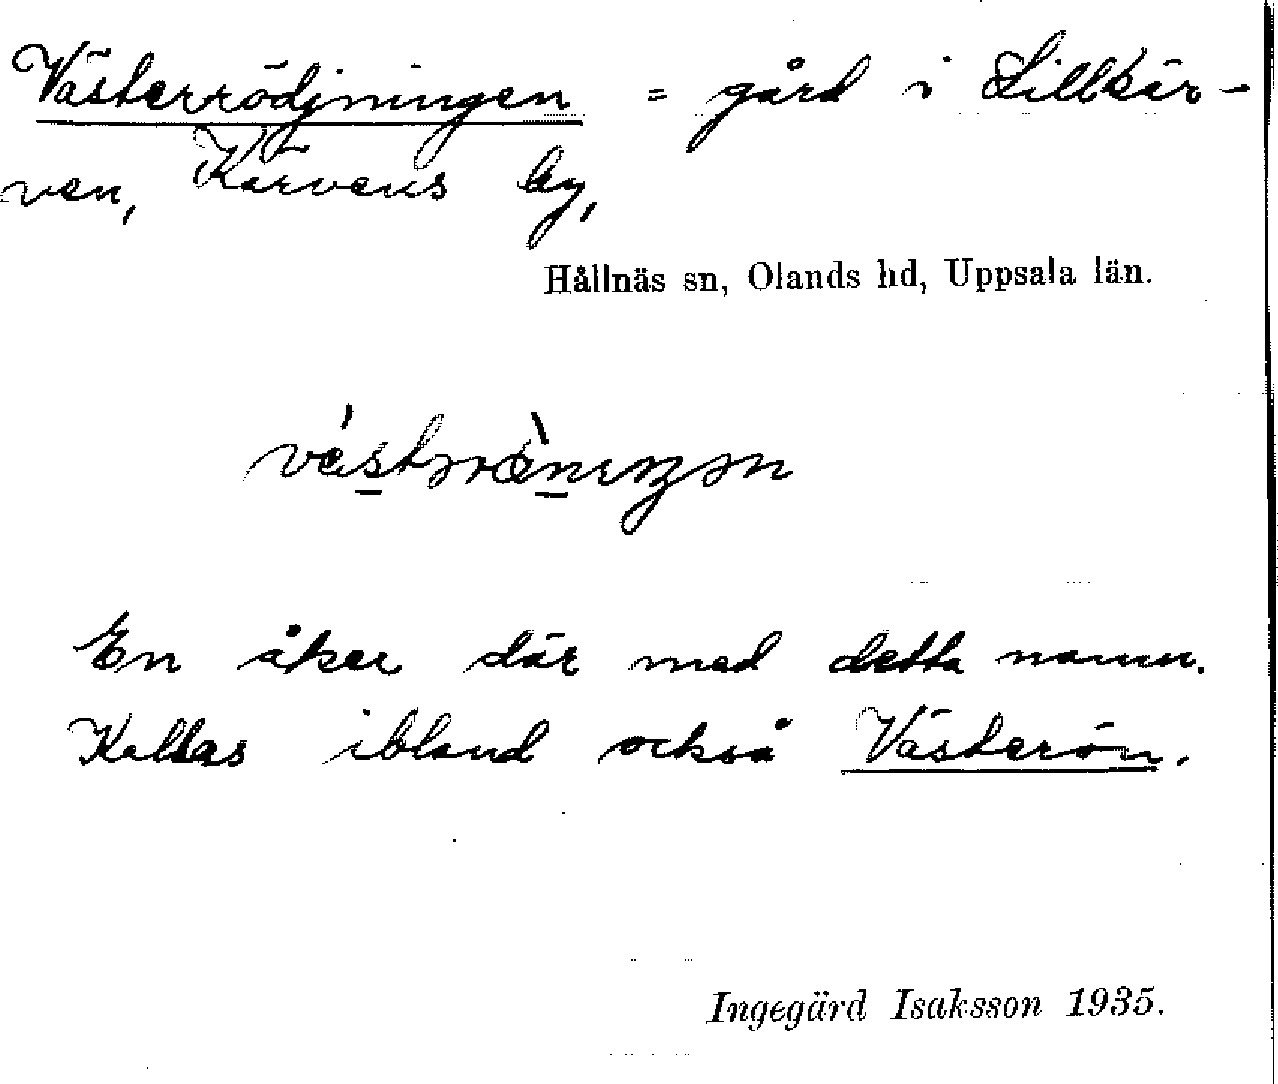 Västerrödjningen = gård i Lillkär-
ven, Kärvens by,
Hållnäs sn, Olands hd, Uppsala län.
En åker där med detta namn.
Kallas ibland också Västerön.
Ingegärd Isaksson 1935.